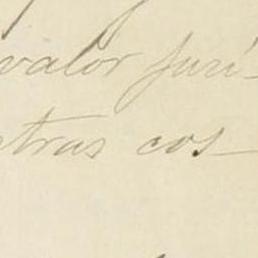 valor jurí-
otras cos-